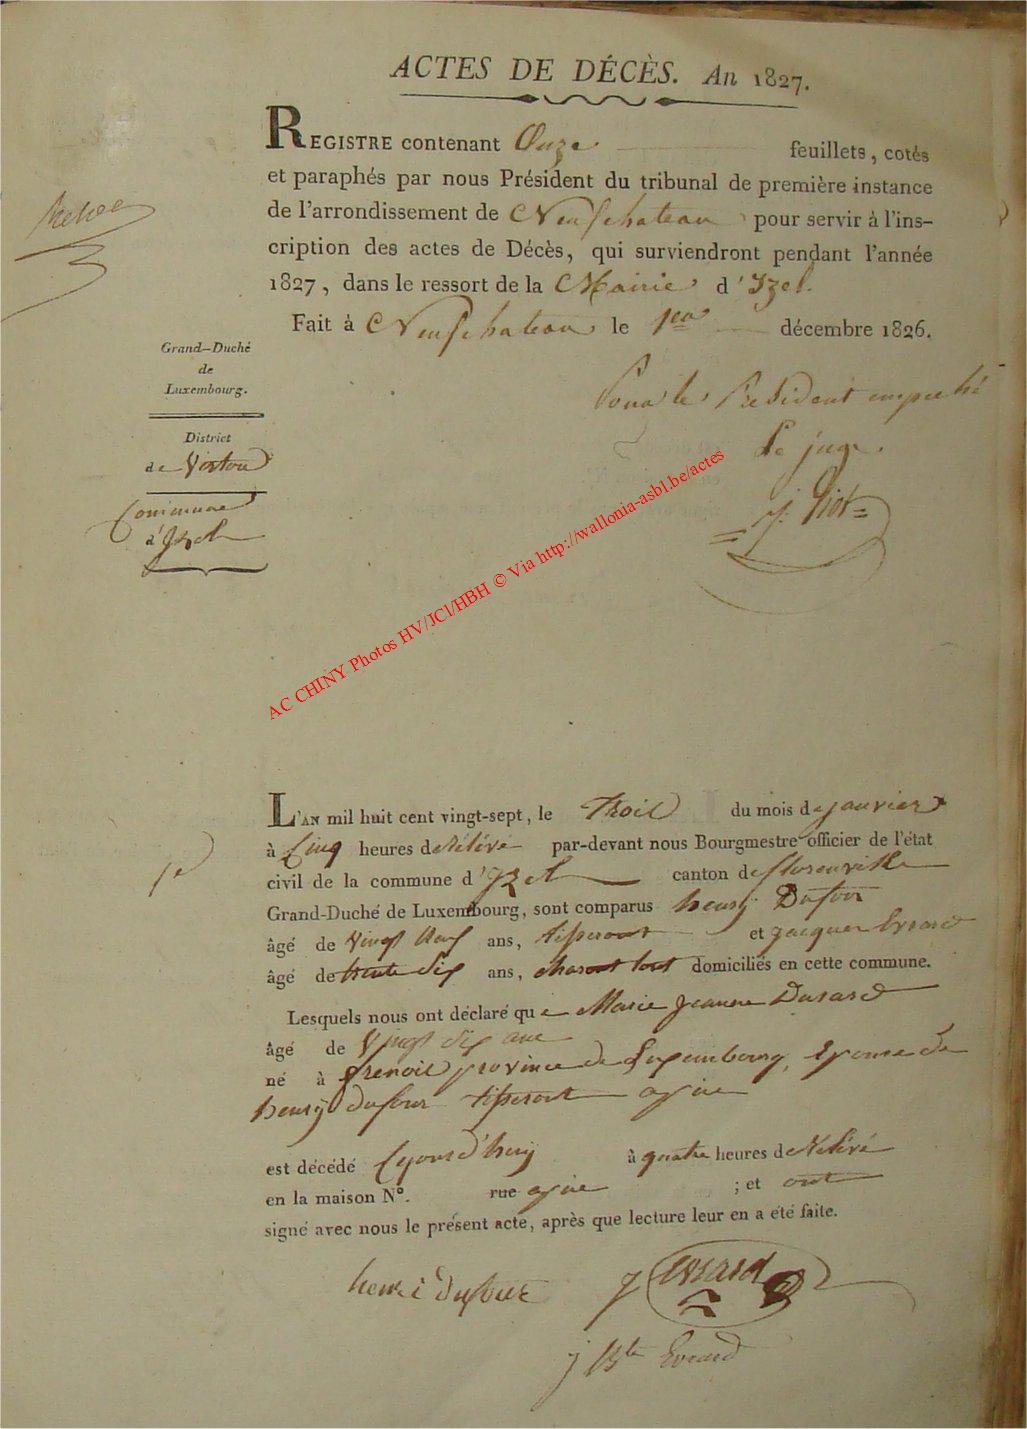 ACTES DE DÉCÈS. An 1827.
REGISTRE contenant Onze feuillets, cotés
et paraphés par nous Président du tribunal de première instance
de l'arrondissement de Neufchateau pour servir à l'ins-
cription des actes de Décès, qui surviendront pendant l'année
1827, dans le ressort de la Mairie d'Izel.
Fait à Neufchateau le 1er décembre 1826.
Pour le Président empeché
Le juge.
Grand-Duché
de
Luxembourg.
District
de Virton
Commune
d'Izel
AC CHINY Photos HV/JCl/HBH © Via http://wallonia-asbl.be/actes
L'AN mil huit cent vingt-sept, le Trois du mois de janvier
à Cinq heures de Rélévé par-devant nous Bourgmestre officier de l'état
civil de la commune d'Izel canton de florenville
Grand-Duché de Luxembourg, sont comparus henry Dufour
âgé de Vingt Neuf ans, tisserant et jacques Evrard
âgé de trente Six ans, domiciliés en cette commune.
Lesquels nous ont déclaré que Marie Jeanne Dusard
âgé de Vingt Six ans
né à frenois province de Luxembourg, Epouse de
henry dufour tisserant a Izel
est décédé cejourd'huy à quatre heures de Rélévé
en la maison N°. rue a Izel ; et ont
signé avec nous le présent acte, après que lecture leur en a été faite.
henri dufour J Evrard
J Bte Evrard